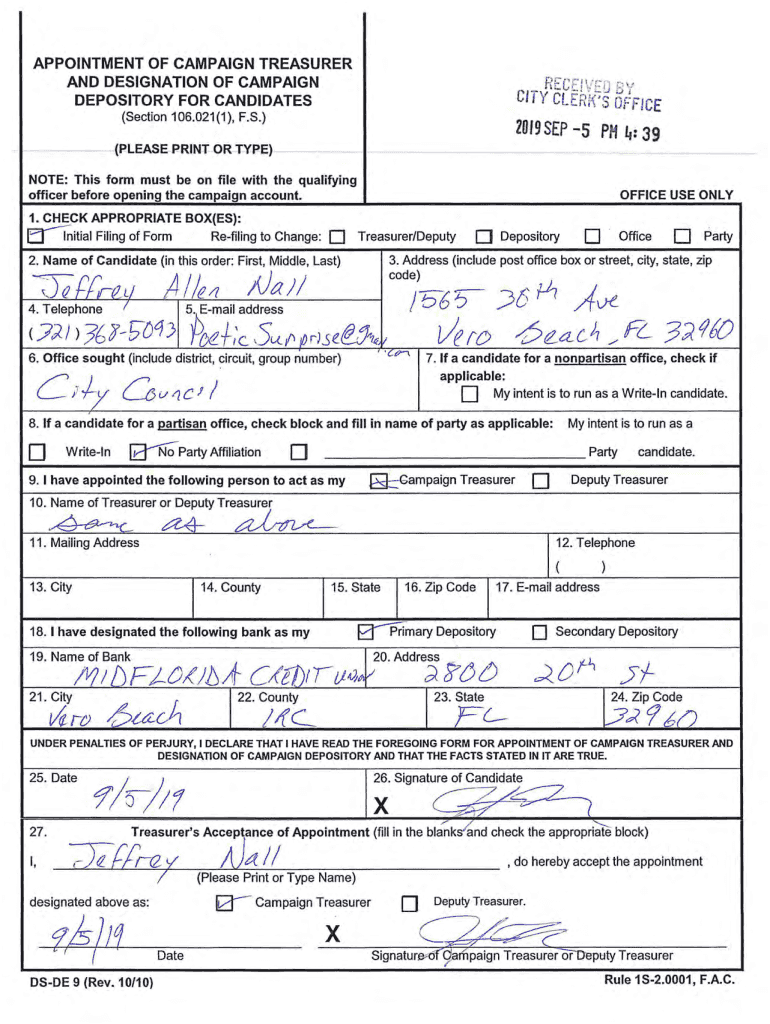 APPOINTMENT OF CAMPAIGN TREASURER
AND DESIGNATION OF CAMPAIGN
DEPOSITORY FOR CANDIDATES
(Section 106.021(1), F.S.)
(PLEASE PRINT OR TYPE)
NOTE: This form must be on file with the qualifying
officer before opening the campaign account.
RECEIVED BY
CITY CLERK'S OFFICE
2019 SEP -5 PM 4:39
OFFICE USE ONLY
1. CHECK APPROPRIATE BOX(ES):
Initial Filing of Form Re-filing to Change: Treasurer/Deputy Depository Office Party
2. Name of Candidate (in this order: First, Middle, Last)
Jeffrey Allen Nall
3. Address (include post office box or street, city, state, zip
code)
1565 36th Ave
Vero Beach, FL 32960
4. Telephone
(321) 368-5093
5. E-mail address
PoeticSurprise@gmail.com
6. Office sought (include district, circuit, group number)
City Council
7. If a candidate for a nonpartisan office, check if
applicable:
My intent is to run as a Write-In candidate.
8. If a candidate for a partisan office, check block and fill in name of party as applicable: My intent is to run as a
Write-In No Party Affiliation Party candidate.
9. I have appointed the following person to act as my Campaign Treasurer Deputy Treasurer
10. Name of Treasurer or Deputy Treasurer
same as above
11. Mailing Address
12. Telephone
( )
13. City 14. County 15. State 16. Zip Code 17. E-mail address
18. I have designated the following bank as my Primary Depository Secondary Depository
19. Name of Bank
MIDFLORIDA CREDIT UNION
20. Address
2800 20th St
21. City
Vero Beach
22. County
IRC
23. State
FL
24. Zip Code
32960
UNDER PENALTIES OF PERJURY, I DECLARE THAT I HAVE READ THE FOREGOING FORM FOR APPOINTMENT OF CAMPAIGN TREASURER AND
DESIGNATION OF CAMPAIGN DEPOSITORY AND THAT THE FACTS STATED IN IT ARE TRUE.
25. Date
9/5/19
26. Signature of Candidate
X
27. Treasurer's Acceptance of Appointment (fill in the blanks and check the appropriate block)
I, Jeffrey Nall , do hereby accept the appointment
(Please Print or Type Name)
designated above as: Campaign Treasurer Deputy Treasurer.
9/5/19 X
Date Signature of Campaign Treasurer or Deputy Treasurer
DS-DE 9 (Rev. 10/10) Rule 1S-2.0001, F.A.C.